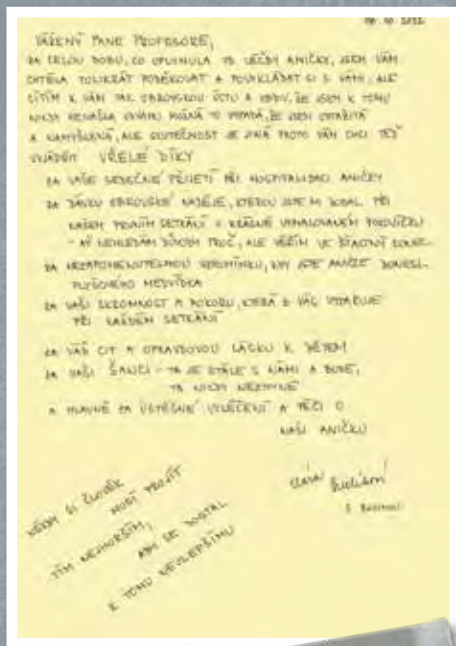 VÁŽENÝ PANE PROFESORE,
ZA CELOU DOBU, CO UPLYNULA OD LÉČBY ANIČKY, JSEM VÁM
CHTĚLA TOLIKRÁT PODĚKOVAT A POVYKLÁDAT SI S VÁMI, ALE
CÍTÍM K VÁM TAK OBROVSKOU ÚCTU A, ŽE JSEM K TOMU
NIKDY NENAŠLA ODVAHU MOŽNÁ TO VYPADÁ, ŽE JSEM OSTAŽITÁ
A NAMYŠLENÁ, ALE SKUTEČNOST JE JINÁ PROTO VÁM CHCI TEĎ
VYJÁDŘIT VŘELÉ DÍKY
ZA VAŠE SRDEČNÉ PŘIJETÍ PŘI HOSPITALIZACI ANIČKY
ZA DÁVKU OBROVSKÉ NADĚJE, KTEROU JSTE MI DODAL PŘI
NAŠEM PRVNÍM SETKÁNÍ V KRÁSNĚ VYMALOVANÉM POKOJÍČKU
- AŤ NEHLEDÁM DŮVOD PROČ, ALE VĚŘÍM VE ŠŤASTNÝ KONEC
ZA NEZAPOMENUTELNOU VZPOMÍNKU, KDY JSTE ANIČCE DONESL
PLYŠOVÉHO MEDVÍDKA
ZA VAŠI SKROMNOST A POKORU, KTERÁ Z VÁS VYZAŘUJE
PŘI KAŽDÉM SETKÁNÍ
ZA VÁŠ CIT A OPRAVDOVOU LÁSKU K DĚTEM
ZA VAŠI ŠANCI - TA JE STÁLE S NÁMI A BUDE,
TA NIKDY NEZHYNE
A HLAVNĚ ZA ÚSPĚŠNÉ VYLÉČENÍ A PÉČI O
NAŠI ANIČKU
NĚKDY SI ČLOVĚK
MUSÍ PROJÍT
TÍM NEJHORŠÍM,
ABY SE DOSTAL
K TOMU NEJLEPŠÍMU
S RODINOU